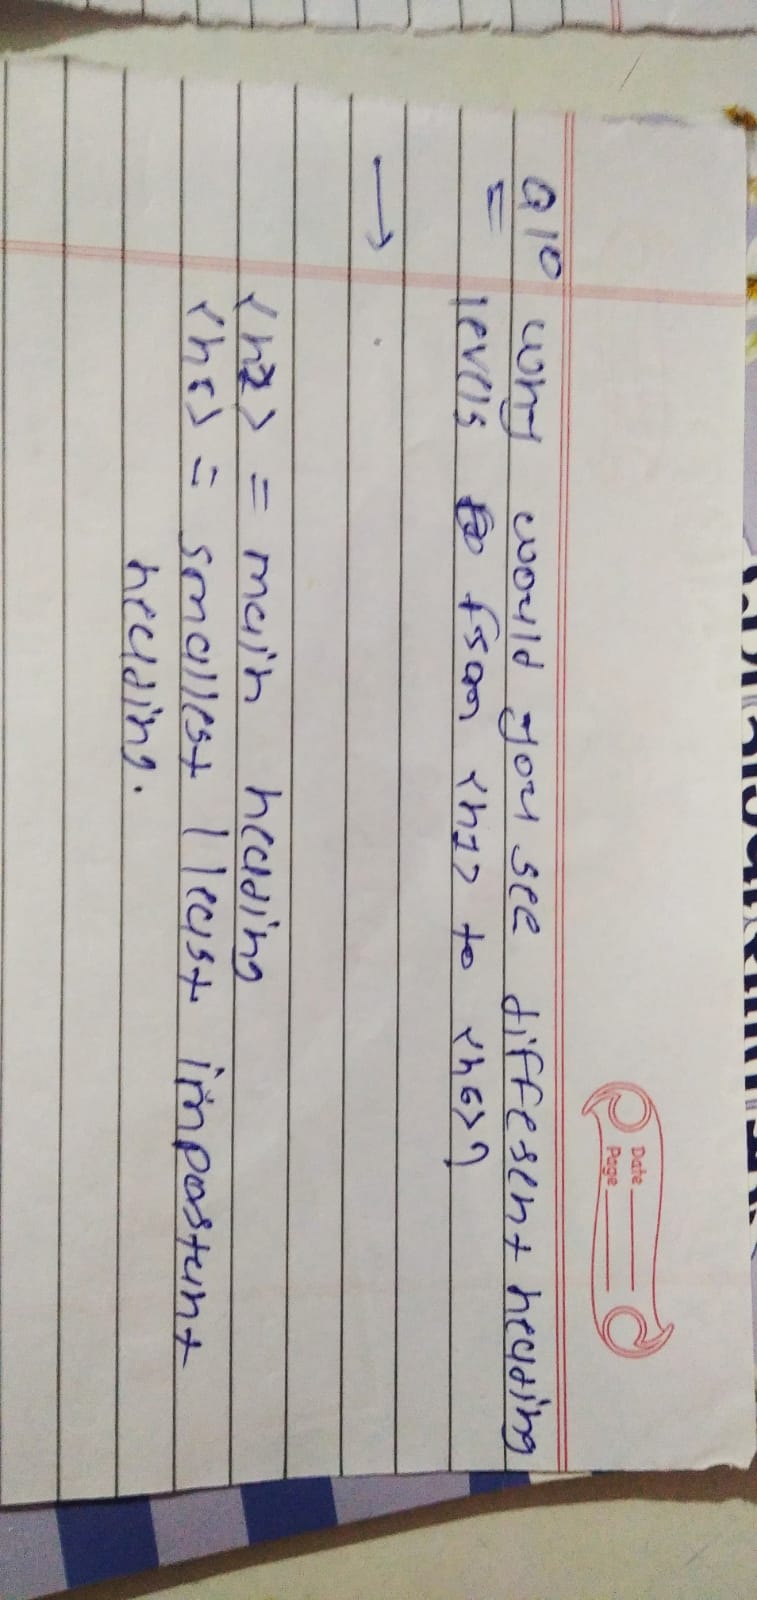 Date
Page
Q10 why would you see different heading
levels from <h1> to <h6>?
→
<h1> = main heading
<h6> = smallest / least important
heading.